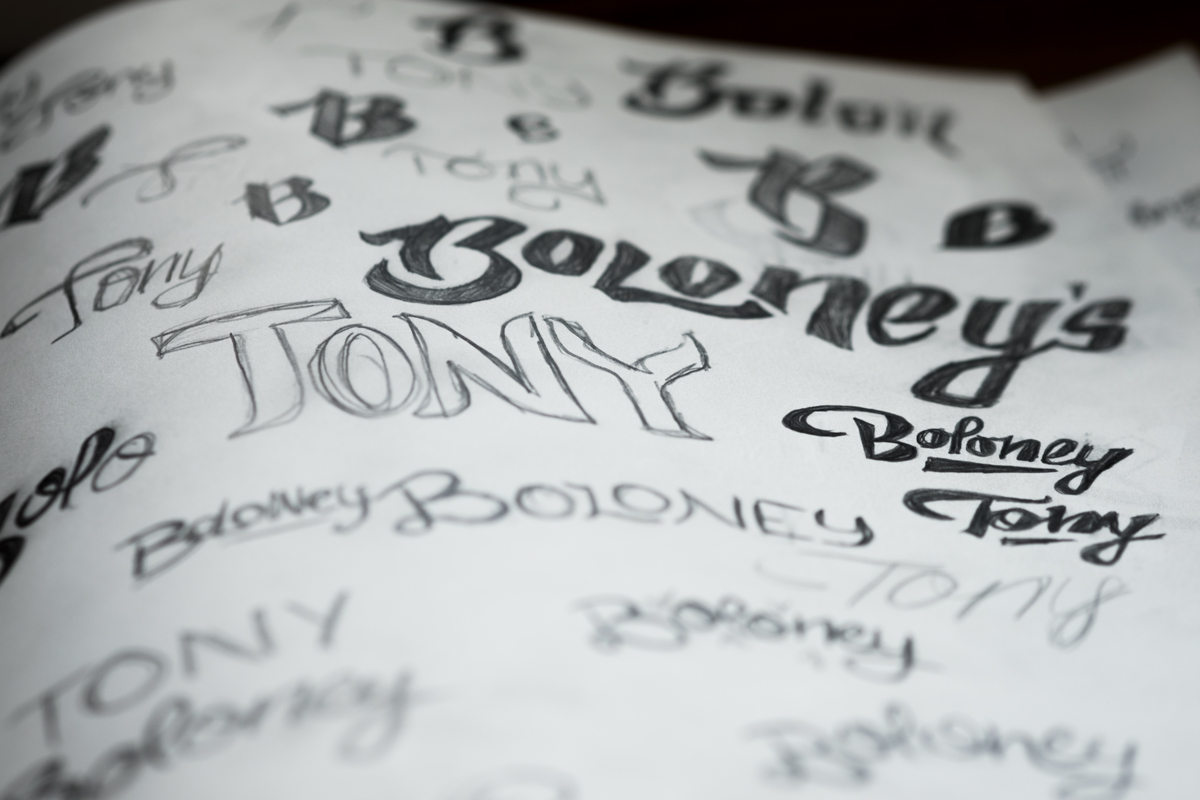 B
TONY
Boloñ
Tony
B
B
Tony
B
B
B
Tony
Boloney's
TONY
Boloney
Tony
Boloney
BOLONEY
Tony
Boloney
TONY
Boloney
Boloney